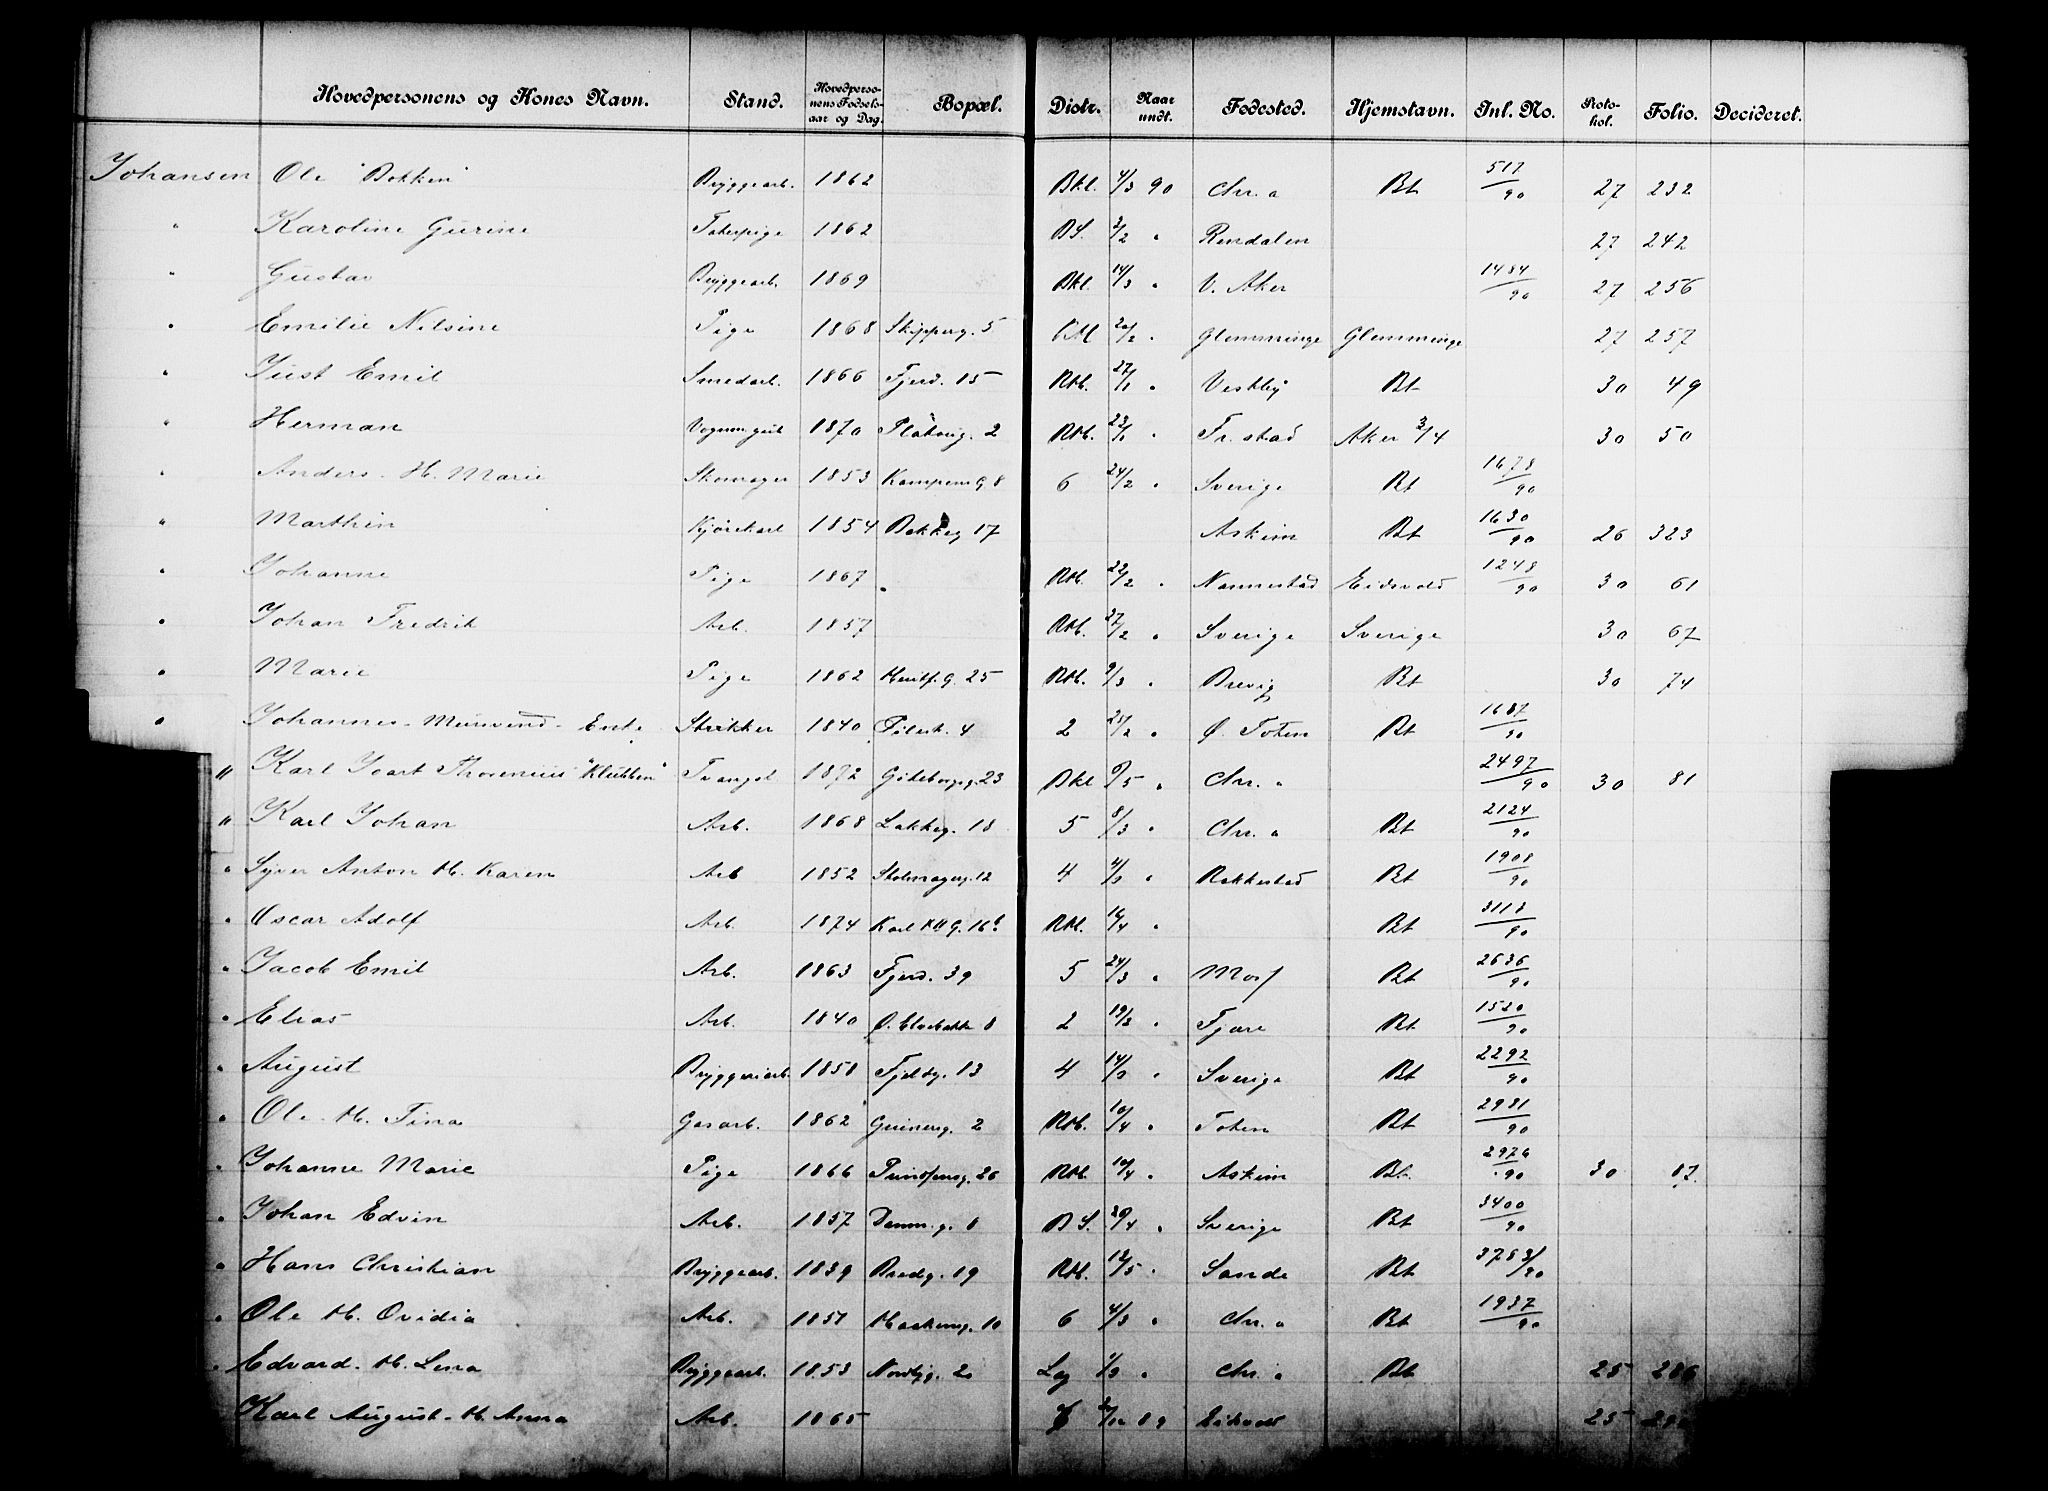 Hovedpersonens og Kones Navn. Stand. Hovedperso-nens Fødsels-aar og Dag. Bopæl. Distr. Naar undt. Fødested. Hjemstavn. Inl. No. Proto-kol. Folio. Decideret.
Johansen Ole "Bakken" Bryggearb. 1862 Bkl. 4/3 90 Chr.a Bt 517/90 27 232
" Karoline Gurine 1862 BS. 3/2 " Rendalen 27 242
" Gustav Bryggearb. 1869 Bkl. 14/3 " V. Aker 1484/90 27 256
" Emilie Nilsine Pige 1868 Skipperg. 5 20/2 " Glemminge Glemminge 27 257
" Just Emil Smedarb. 1866 Fjerd. 15 Rtb. 27/1 " Vestby Bt 30 49
" Herman 1870 Platoug. 2 Rtb. 22/1 " Fr.stad Aker 3/4 30 50
" Anders - H. Marie Skomager 1853 Kampeng 8 6 24/2 " Sverige Bt 1678/90
" Marthin Kjørekarl 1854 Bakkeg 17 Askim Bt 1630/90 26 323
" Johanne Pige 1867 Rtb. 22/2 " Nannestad Eidsvold 1248/90 30 61
" Johan Fredrik Arb. 1857 Rtb. 27/2 " Sverige Sverige 30 67
" Marie Pige 1862 25 Rtb. 9/3 " Brevig Bt 30 74
" Johannes - Murvend - Enke Strikker 1840 Pilest. 4 2 25/2 " Ø. Toten Bt 1687/90
" Karl Ivart Thorenius "Klubben" Tvangsl 1872 Göteborgg. 23 Bkl 6/5 " Chr. a 2497/90 30 81
" Karl Johan Arb. 1868 Lakkeg. 18 5 8/3 " Chr. a Bt 2124/90
" Syver Anton H. Karen Arb 1852 Skomagerg. 12 4 4/3 " Rakkestad Bt 1908/90
" Oscar Adolf Arb. 1874 Karl XII G. 16b Rtb. 16/4 " Bt 3118/90
" Jacob Emil Arb. 1863 Fjerd. 39 5 24/3 " Moss Bt 2636/90
" Elias Arb. 1840 Ø. Elvebakke 8 2 19/3 " Fjære Bt 1530/90
" August Bryggeriarb. 1858 Fjeldg. 13 4 14/3 " Sverige Bt 2292/90
" Ole H. Tina Gasarb. 1862 Grünerg. 2 Rtb. 10/4 " Toten Bt 2981/90
" Johanne Marie Pige 1866 Prindsensg. 26 Rtb. 10/4 " Askim Bt. 2976/90 30 87.
" Johan Edvin Arb. 1857 Danm.g. 8 B S. 29/4 " Sverige Bt 3400/90
" Hans Christian Bryggearb. 1839 Bredg. 19 Rtb. 12/5 " Sande Bt 3783/90
" Ole H. Ovidia Arb. 1851 10 6 4/3 " Chr. a Bt 1937/90
" Edvard. H. Lena Bryggearb. 1853 Nordbyg. 2 Lag 1/3 " Chr. a Bt 25 286
Karl August - H. Anna Arb. 1865 89 Eidsvold 25